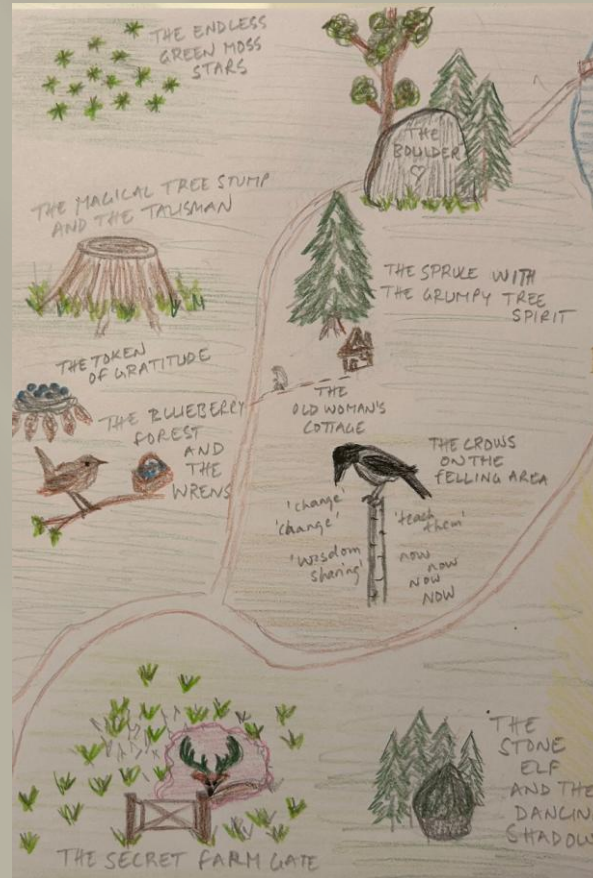 THE ENDLESS
GREEN MOSS
STARS
THE
BOULDER
THE MAGICAL TREE STUMP
AND THE TALISMAN
THE SPRUCE WITH
THE GRUMPY TREE
SPIRIT
THE TOKEN
OF GRATITUDE
THE
OLD WOMAN'S
COTTAGE
THE BLUEBERRY
FOREST
AND
THE
WRENS
THE CROWS
ON THE
FELLING AREA
'change'
'change'
'teach
them'
'wisdom
sharing'
now
now
NOW
NOW
THE
STONE
ELF
AND THE
DANCIN
SHADOW
THE SECRET FARM GATE